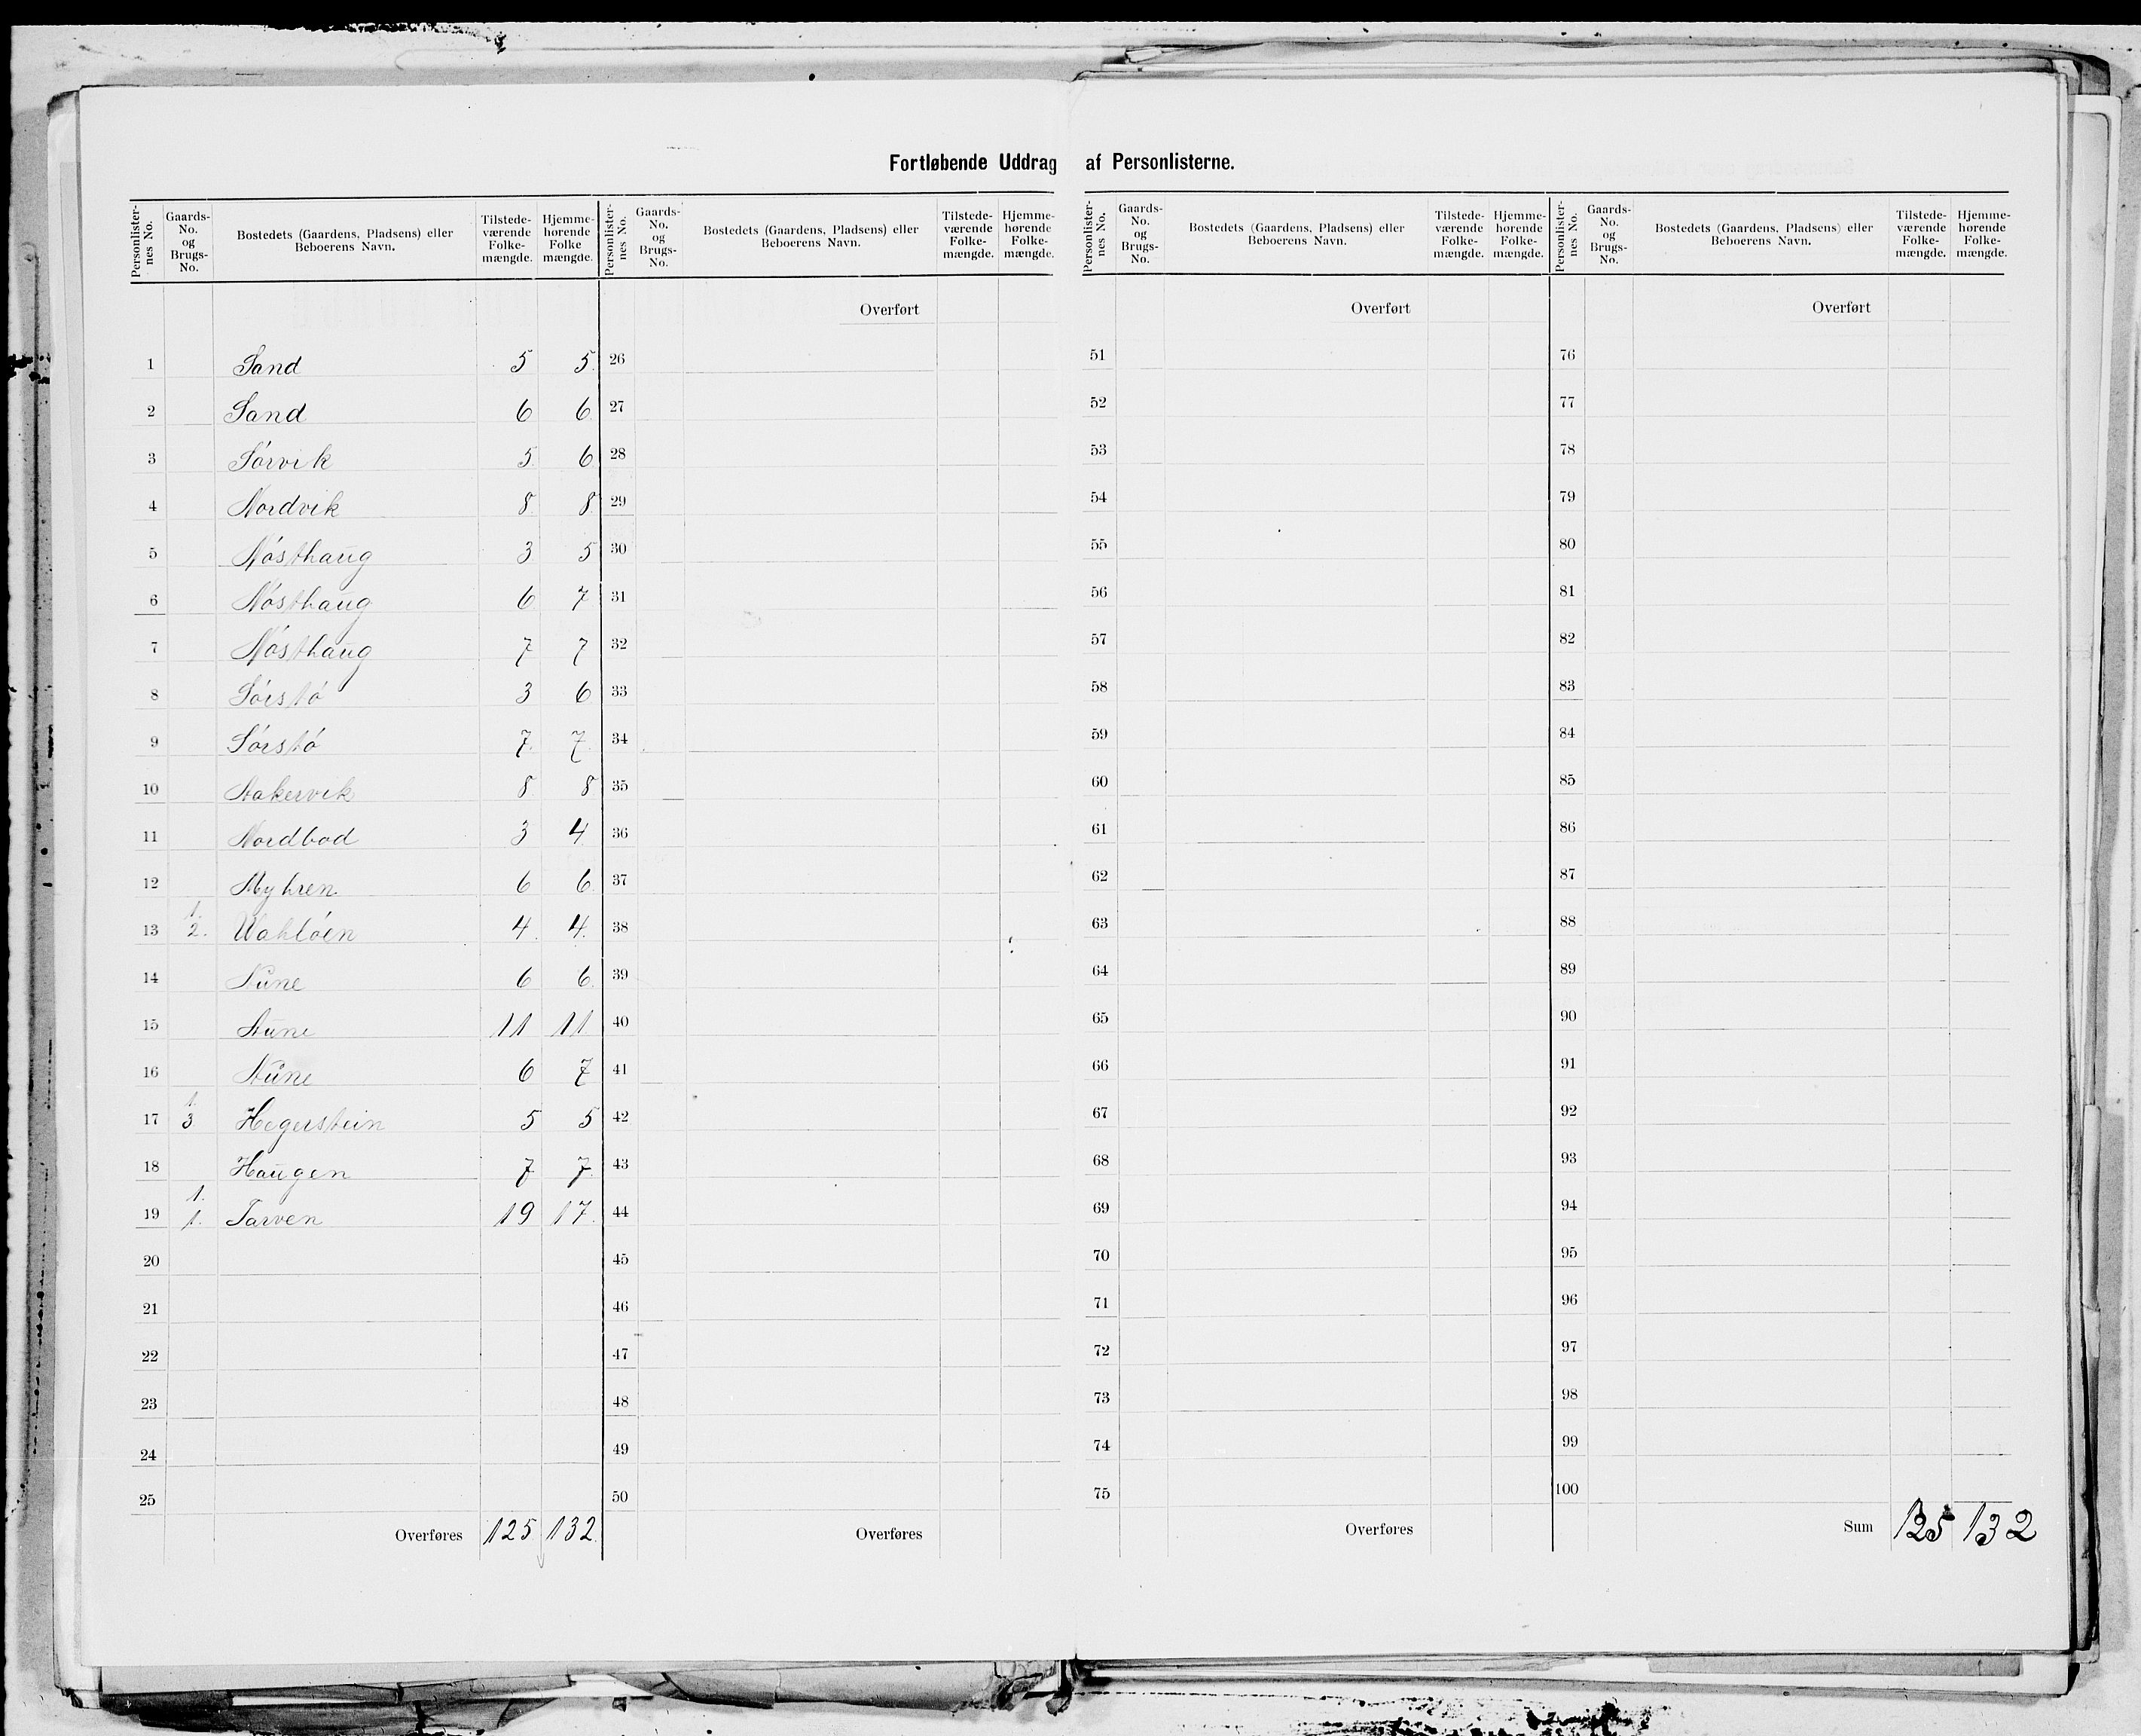 Fortløbende Uddrag af Personlisterne.
Personlister-nes No. Gaards-No. og Brugs-No. Bostedets (Gaardens, Pladsens) eller Beboerens Navn. Tilstede-værende Folke-mængde. Hjemme-hørende Folke mængde.
1 Sand 5 5.
2 Sand 6 6.
3 Sörvik 5. 6
4 Nordvik 8. 8
5 Nösthaug 3. 5
6 Nösthaug 6 7
7 Nösthaug 7 7
8 Sörstö 3 6
9 Sörstö 7. 7.
10 Aakervik 8. 8
11 Nordbod 3 4
12 Myhren 6 6.
13 1. 2. Wahlöen 4. 4.
14 Aune 6 6.
15 Aune 11 11
16 Aune 6 7
17 1. 3 Hegerstein 5 5
18 Haugen 7 7.
19 1. 1. Tarven 19 17.
20
21
22
23
24
25
Overføres 125 132.
Personlister-nes No. Gaards-No. og Brugs-No. Bostedets (Gaardens, Pladsens) eller Beboerens Navn. Tilstede-værende Folke-mængde. Hjemme-hørende Folke-mængde.
Overført
26
27
28
29
30
31
32
33
34
35
36
37
38
39
40
41
42
43
44
45
46
47
48
49
50
Overføres
Personlister-nes No. Gaards-No. og Brugs-No. Bostedets (Gaardens, Pladsens) eller Beboerens Navn. Tilstede-værende Folke-mængde. Hjemme-hørende Folke-mængde.
Overført
51
52
53
54
55
56
57
58
59
60
61
62
63
64
65
66
67
68
69
70
71
72
73
74
75
Overføres
Personlister-nes No. Gaards-No. og Brugs-No. Bostedets (Gaardens, Pladsens) eller Beboerens Navn. Tilstede-værende Folke-mængde. Hjemme-hørende Folke-mængde.
Overført
76
77
78
79
80
81
82
83
84
85
86
87
88
89
90
91
92
93
94
95
96
97
98
99
100
Sum 125 132